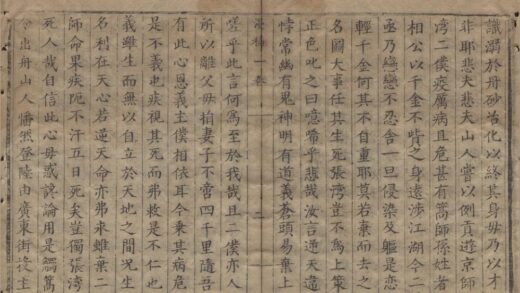 識溺於丹砂沽化以終其身毋乃以才
非耶悲夫悲夫山人嘗以例貢遊京師
灣二僕病厲且危甚有篙師係姓者
相公以千金不貲之身遠涉江湖今二
丞乃繾戀不忍舍一旦侵染及軀是恋
輕千金何其不自重耶莫若棄而去之
名圖大事任其生死張灣豈不為上策
正色叱之曰噫嘻乎悲哉汝言逆天違
悖常幽有鬼神明有道義蒼頭易棄上
一卷 二
嗟乎此言何為至於我哉且二僕亦人
所以離父母抛妻子不啻四千里隨吾
有此心恩義主僕相依耳今乗其病危
是不義也疾視其死而弗救是不仁也
義雖生而無以自立於天地之間況生
名利在天心若逆天命亦弗來雖棄二
師命果疾不汗五日死矣豈獨張灣
死人哉自信此心毋或論用是觸篙
令出舟山人幡然登陸由廣東街後主